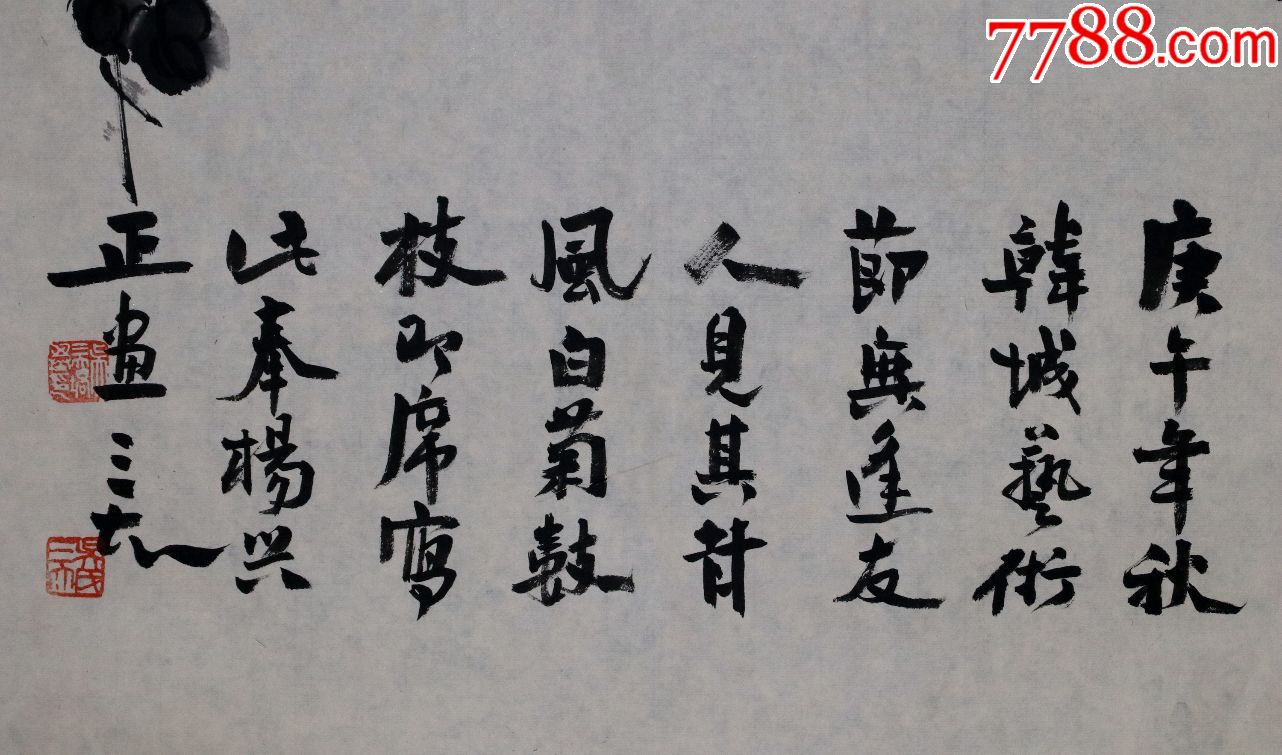 庚午年秋
韓城藝術
節無逢友
人見其背
風白菊鼓
枝即席寫
此奉楊興
正畫三
7788.com